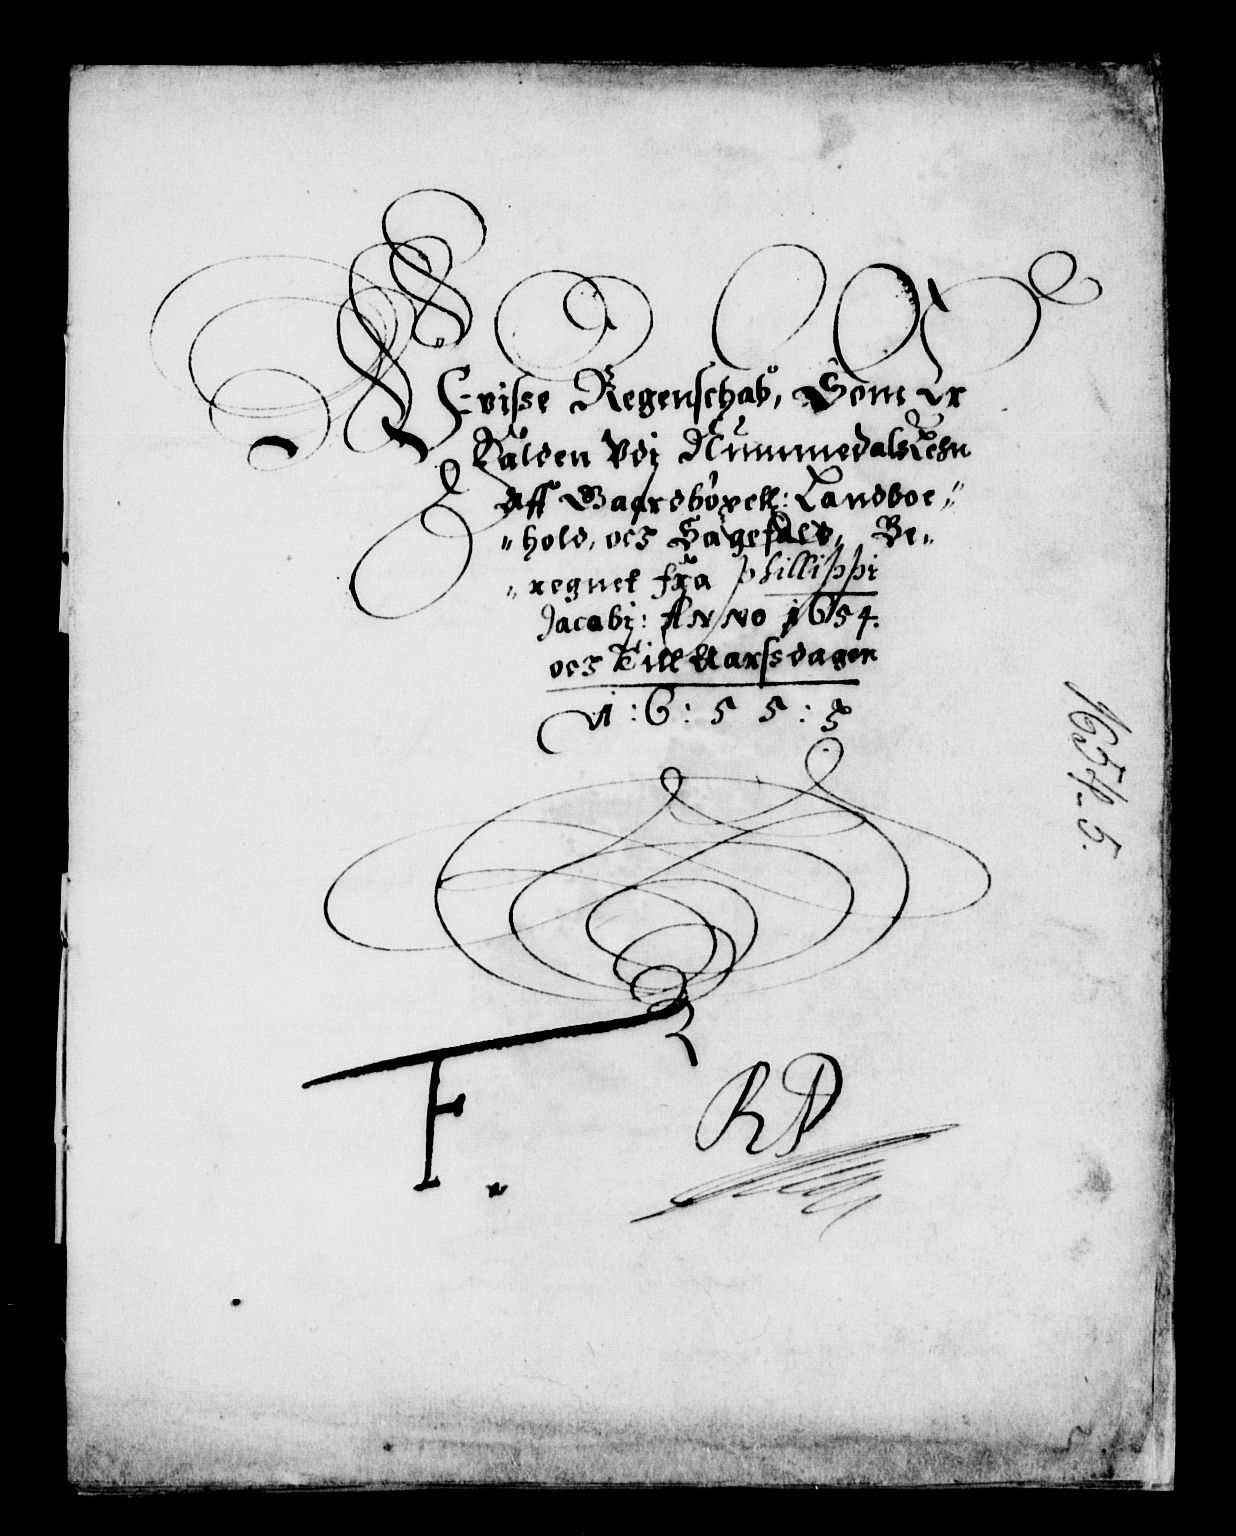 Uvisse Regenschab, Som Er
Falden Udj Nummedals Lehn
Aff Gaardbøxell: Landboe
hold, och Sagefald, Be-
regnet fra Phillippi
Jacobj: Anno 1654.
och Till Aarssdagen
1:6:5 5:
F.
RP
1654-5.